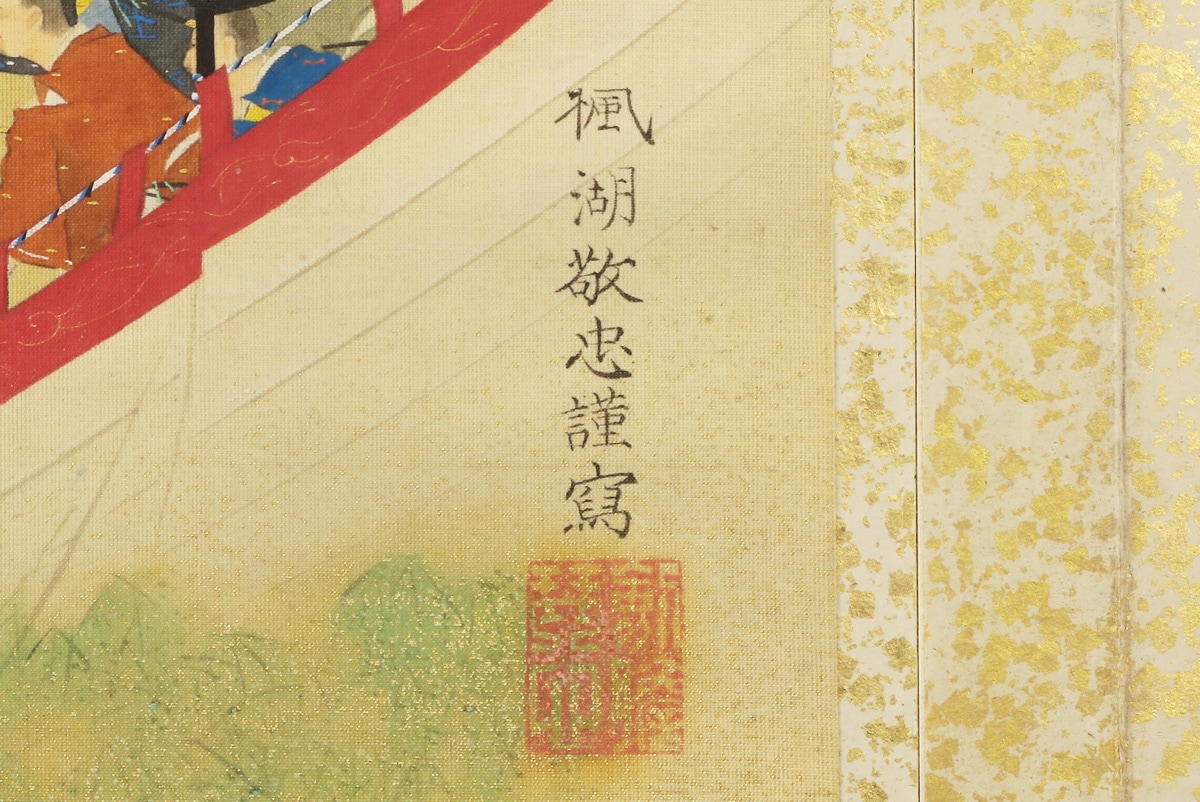 楓湖敬忠謹寫